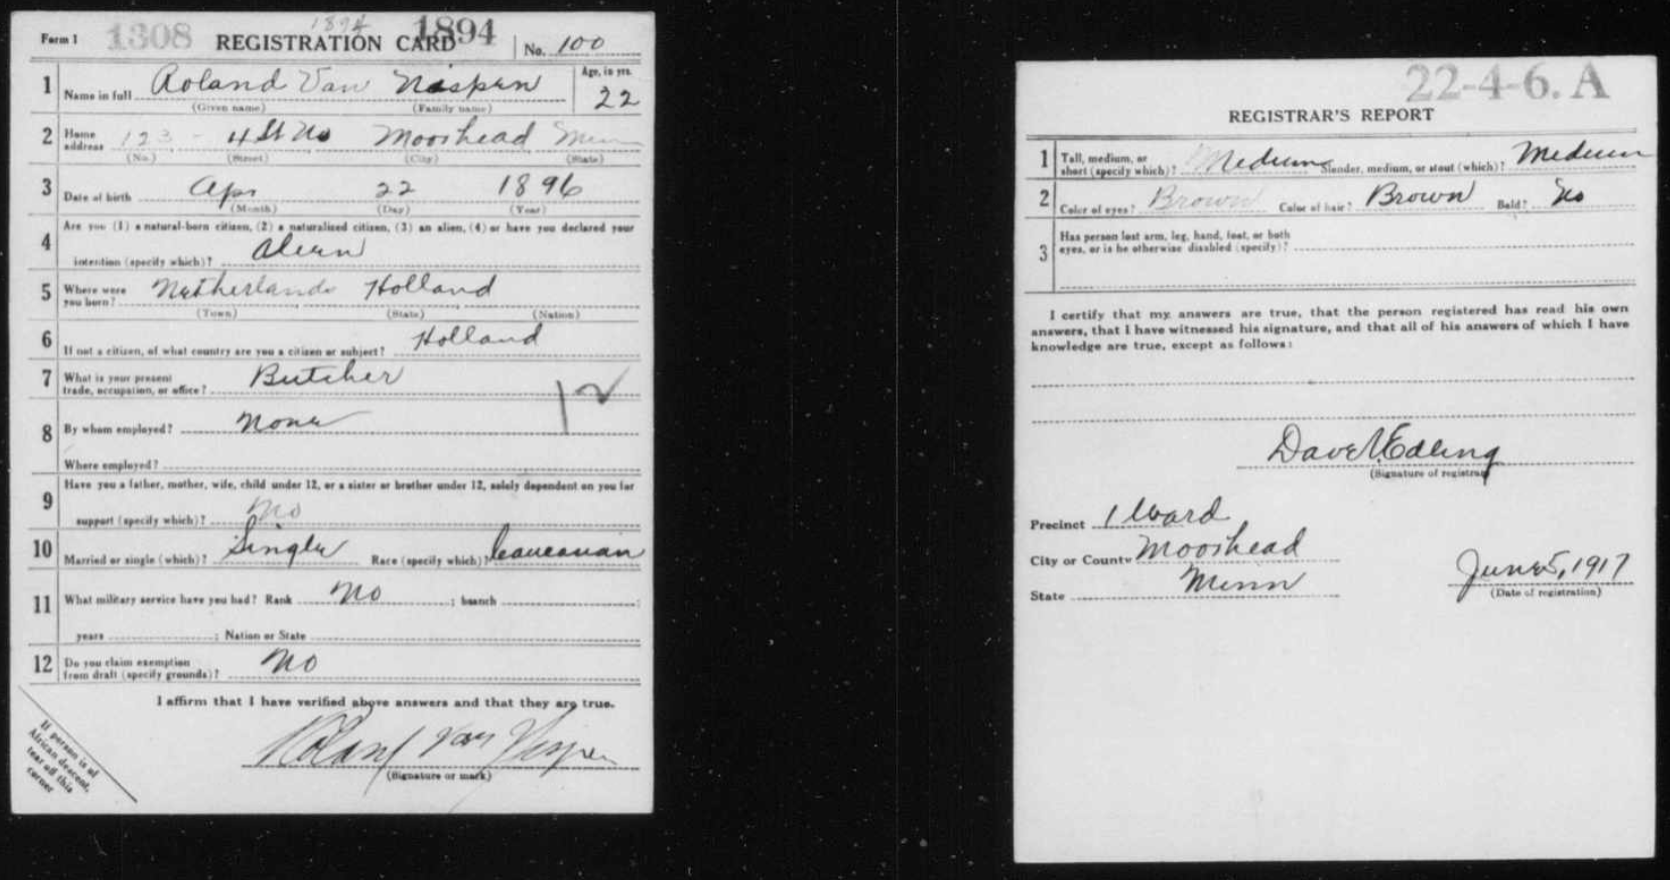 1894
Form 1 1308 REGISTRATION CARD 1894 No. 100
1 Name in full Roland Van Naspen Age, in yrs. 22
(Given name) (Family name)
2 Home address 123 - 4 St No Moorhead Minn
(No.) (Street) (City) (State)
3 Date of birth Apr 22 1896
(Month) (Day) (Year)
4 Are you (1) a natural-born citizen, (2) a naturalized citizen, (3) an alien, (4) or have you declared your
intention (specify which)? Alien
5 Where were you born? Netherlands Holland
(Town) (State) (Nation)
6 If not a citizen, of what country are you a citizen or subject? Holland
7 What is your present trade, occupation, or office? Butcher
12
8 By whom employed? None
Where employed?
9 Have you a father, mother, wife, child under 12, or a sister or brother under 12, solely dependent on you for
support (specify which)? No
10 Married or single (which)? Single Race (specify which)? Caucasian
11 What military service have you had? Rank No ; branch ;
years ; Nation or State
12 Do you claim exemption from draft (specify grounds)? No
I affirm that I have verified above answers and that they are true.
Roland Van Nispen
(Signature or mark)
If person is of
African descent,
tear off this
corner
22-4-6. A
REGISTRAR'S REPORT
1 Tall, medium, or short (specify which)? Medium Slender, medium, or stout (which)? Medium
2 Color of eyes? Brown Color of hair? Brown Bald? No
3 Has person lost arm, leg, hand, foot, or both
eyes, or is he otherwise disabled (specify)?
I certify that my answers are true, that the person registered has read his own
answers, that I have witnessed his signature, and that all of his answers of which I have
knowledge are true, except as follows:
Dave N Edling
(Signature of registrar)
Precinct 1 Ward
City or County Moorhead
State Minn
June 5, 1917
(Date of registration)